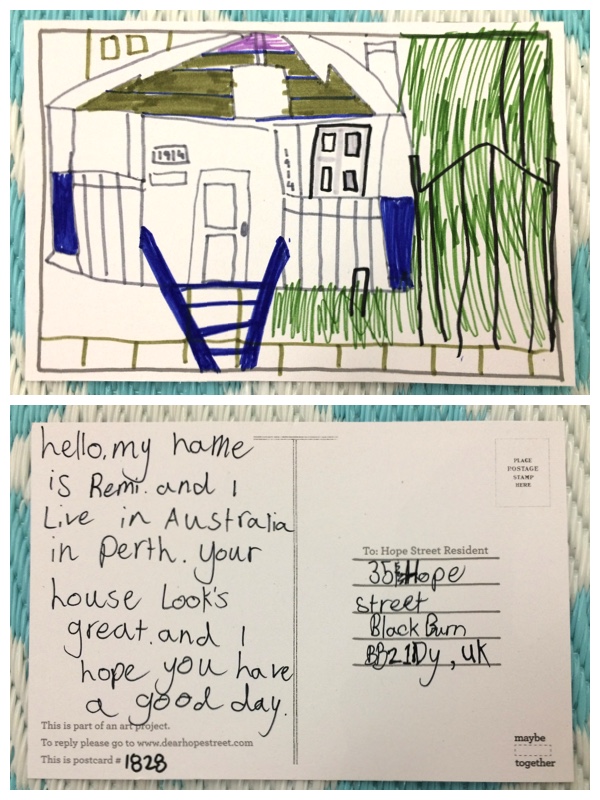 1914
1914
hello, my name
is Remi. and I
Live in Australia
in Perth. your
house Look's
great. and I
hope you have
a good day.
This is part of an art project.
To reply please go to www.dearhopestreet.com
This is postcard # 1828
PLACE
POSTAGE
STAMP
HERE
To: Hope Street Resident
35 Hope
street
Black Burn
BB21Dy, UK
maybe
together